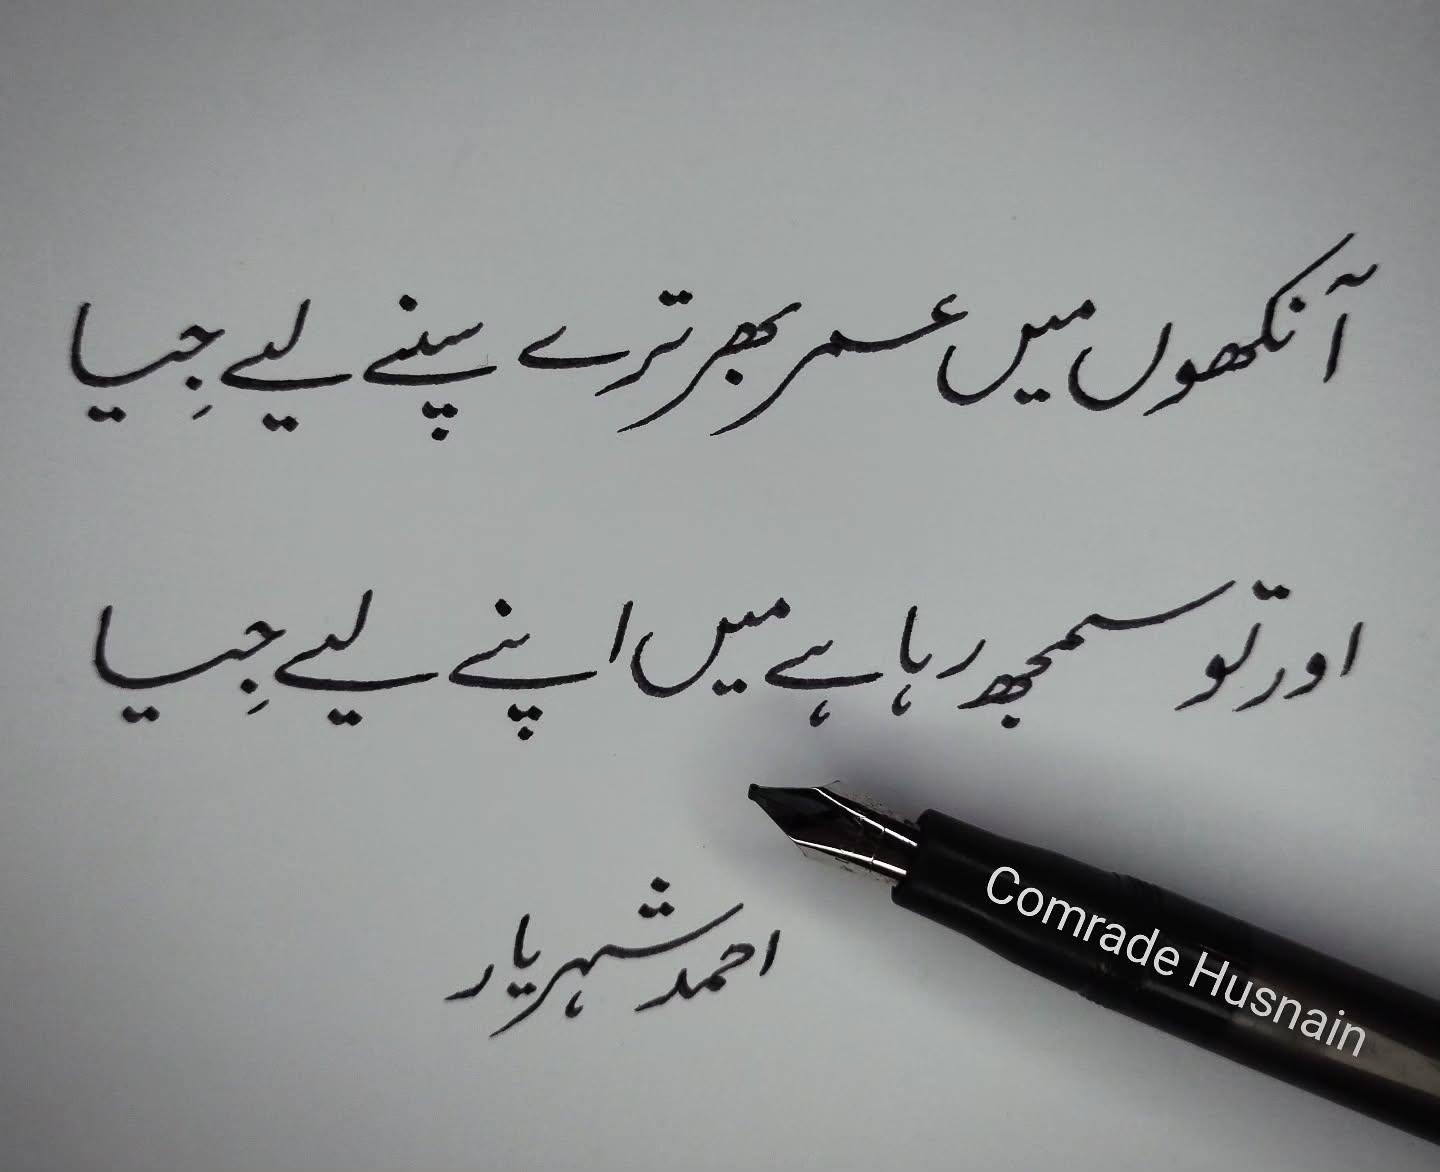 آنکھوں میں عمر بھر ترے سپنے لیے جِیا
اور تو سمجھ رہا ہے میں اپنے لیے جِیا
احمد شہریار
Comrade Husnain